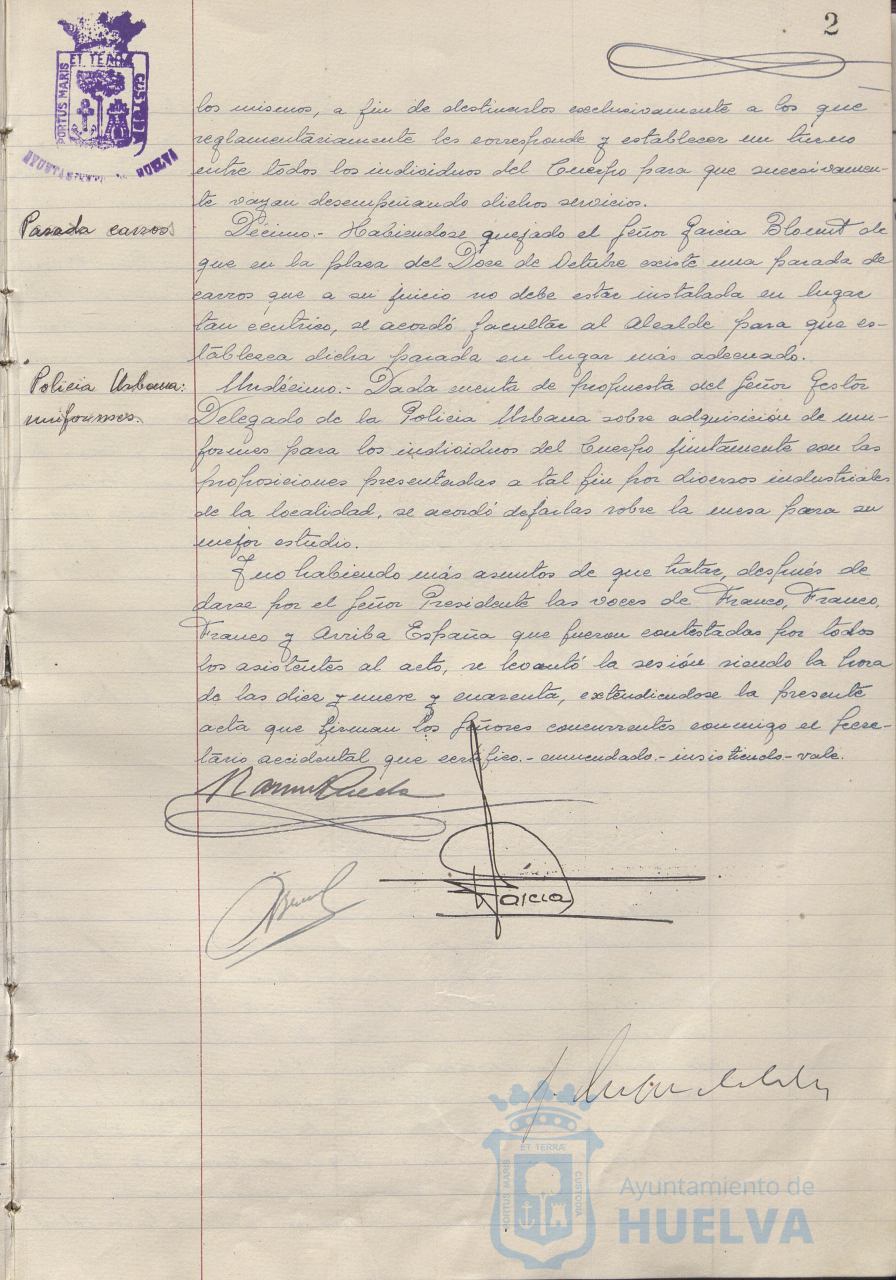 2
ET TERRÆ
PORTUS MARIS
CUSTODIA
AYUNTAMIENTO DE HUELVA
los mismos, a fin de destinarlos exclusivamente a los que
reglamentariamente les corresponde y establecer un turno
entre todos los individuos del Cuerpo para que sucesivamen-
te vayan desempeñando dichos servicios.
Parada carros
Décimo.- Habiendose quejado el Señor Garcia Blomit de
que en la plaza del Doce de Octubre existe una parada de
carros que a su juicio no debe estar instalada en lugar
tan céntrico, se acordó facultar al Alcalde para que es-
tablezca dicha parada en lugar más adecuado.
Policia Urbana:
uniformes.
Undécimo.- Dada cuenta de propuesta del Señor Gestor
Delegado de la Policia Urbana sobre adquisición de uni-
formes para los individuos del Cuerpo juntamente con las
proposiciones presentadas a tal fin por diversos industriales
de la localidad, se acordó dejarlas sobre la mesa para su
mejor estudio.
Y no habiendo más asuntos de que tratar, después de
darse por el Señor Presidente las voces de Franco, Franco,
Franco y Arriba España que fueron contestadas por todos
los asistentes al acto, se levantó la sesión siendo la hora
de las diez y nueve y cuarenta, extendiendose la presente
acta que firman los Señores concurrentes conmigo el Secre-
tario accidental que certifico.- enmendado.- insistiendo - vale.
Garcia
ET TERRÆ
PORTUS MARIS
CUSTODIA
Ayuntamiento de
HUELVA